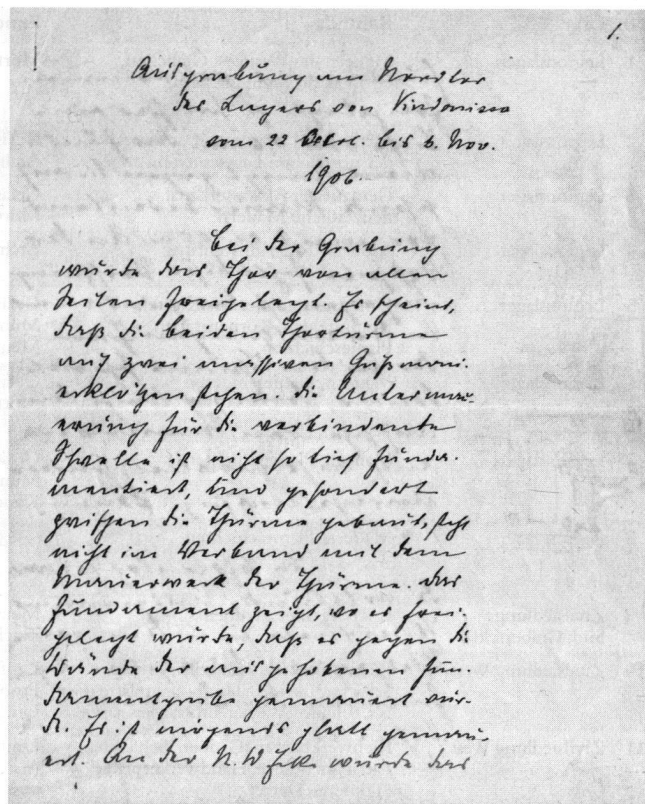 1.
Ausgrabung am Nordtor
des Lagers von Vindonissa
vom 22 Okt. bis 6. Nov.
1906.
Bei der Grabung
wurde das Thor von allen
Seiten freigelegt. Es scheint,
daß die beiden Thortürme
auf zwei massiven Gußmau-
erklötzen stehen. Die Untermau-
erung für die verbindende
Schwelle ist nicht so tief funda-
mentiert, und gesondert
zwischen die Thürme gebaut, steht
nicht im Verband mit dem
Mauerwerk der Thürme. Das
Fundament zeigt, wo es frei-
gelegt wurde, daß es gegen die
Wände der ausgehobenen Fun-
damentgrube gemauert wur-
de. Es ist nirgends glatt gemau-
ert. An der N.W Ecke wurde das